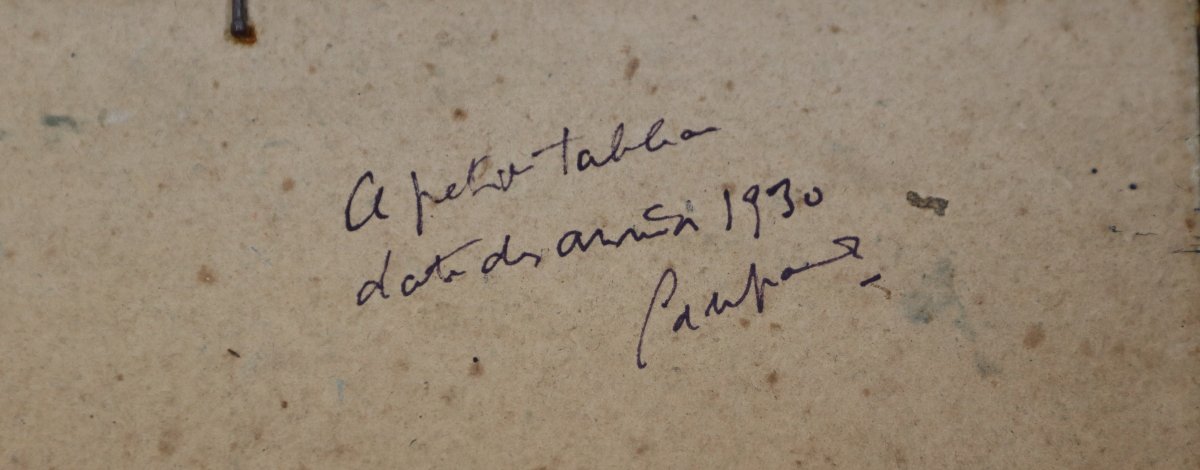 Ce petit tableau
date des années 1930